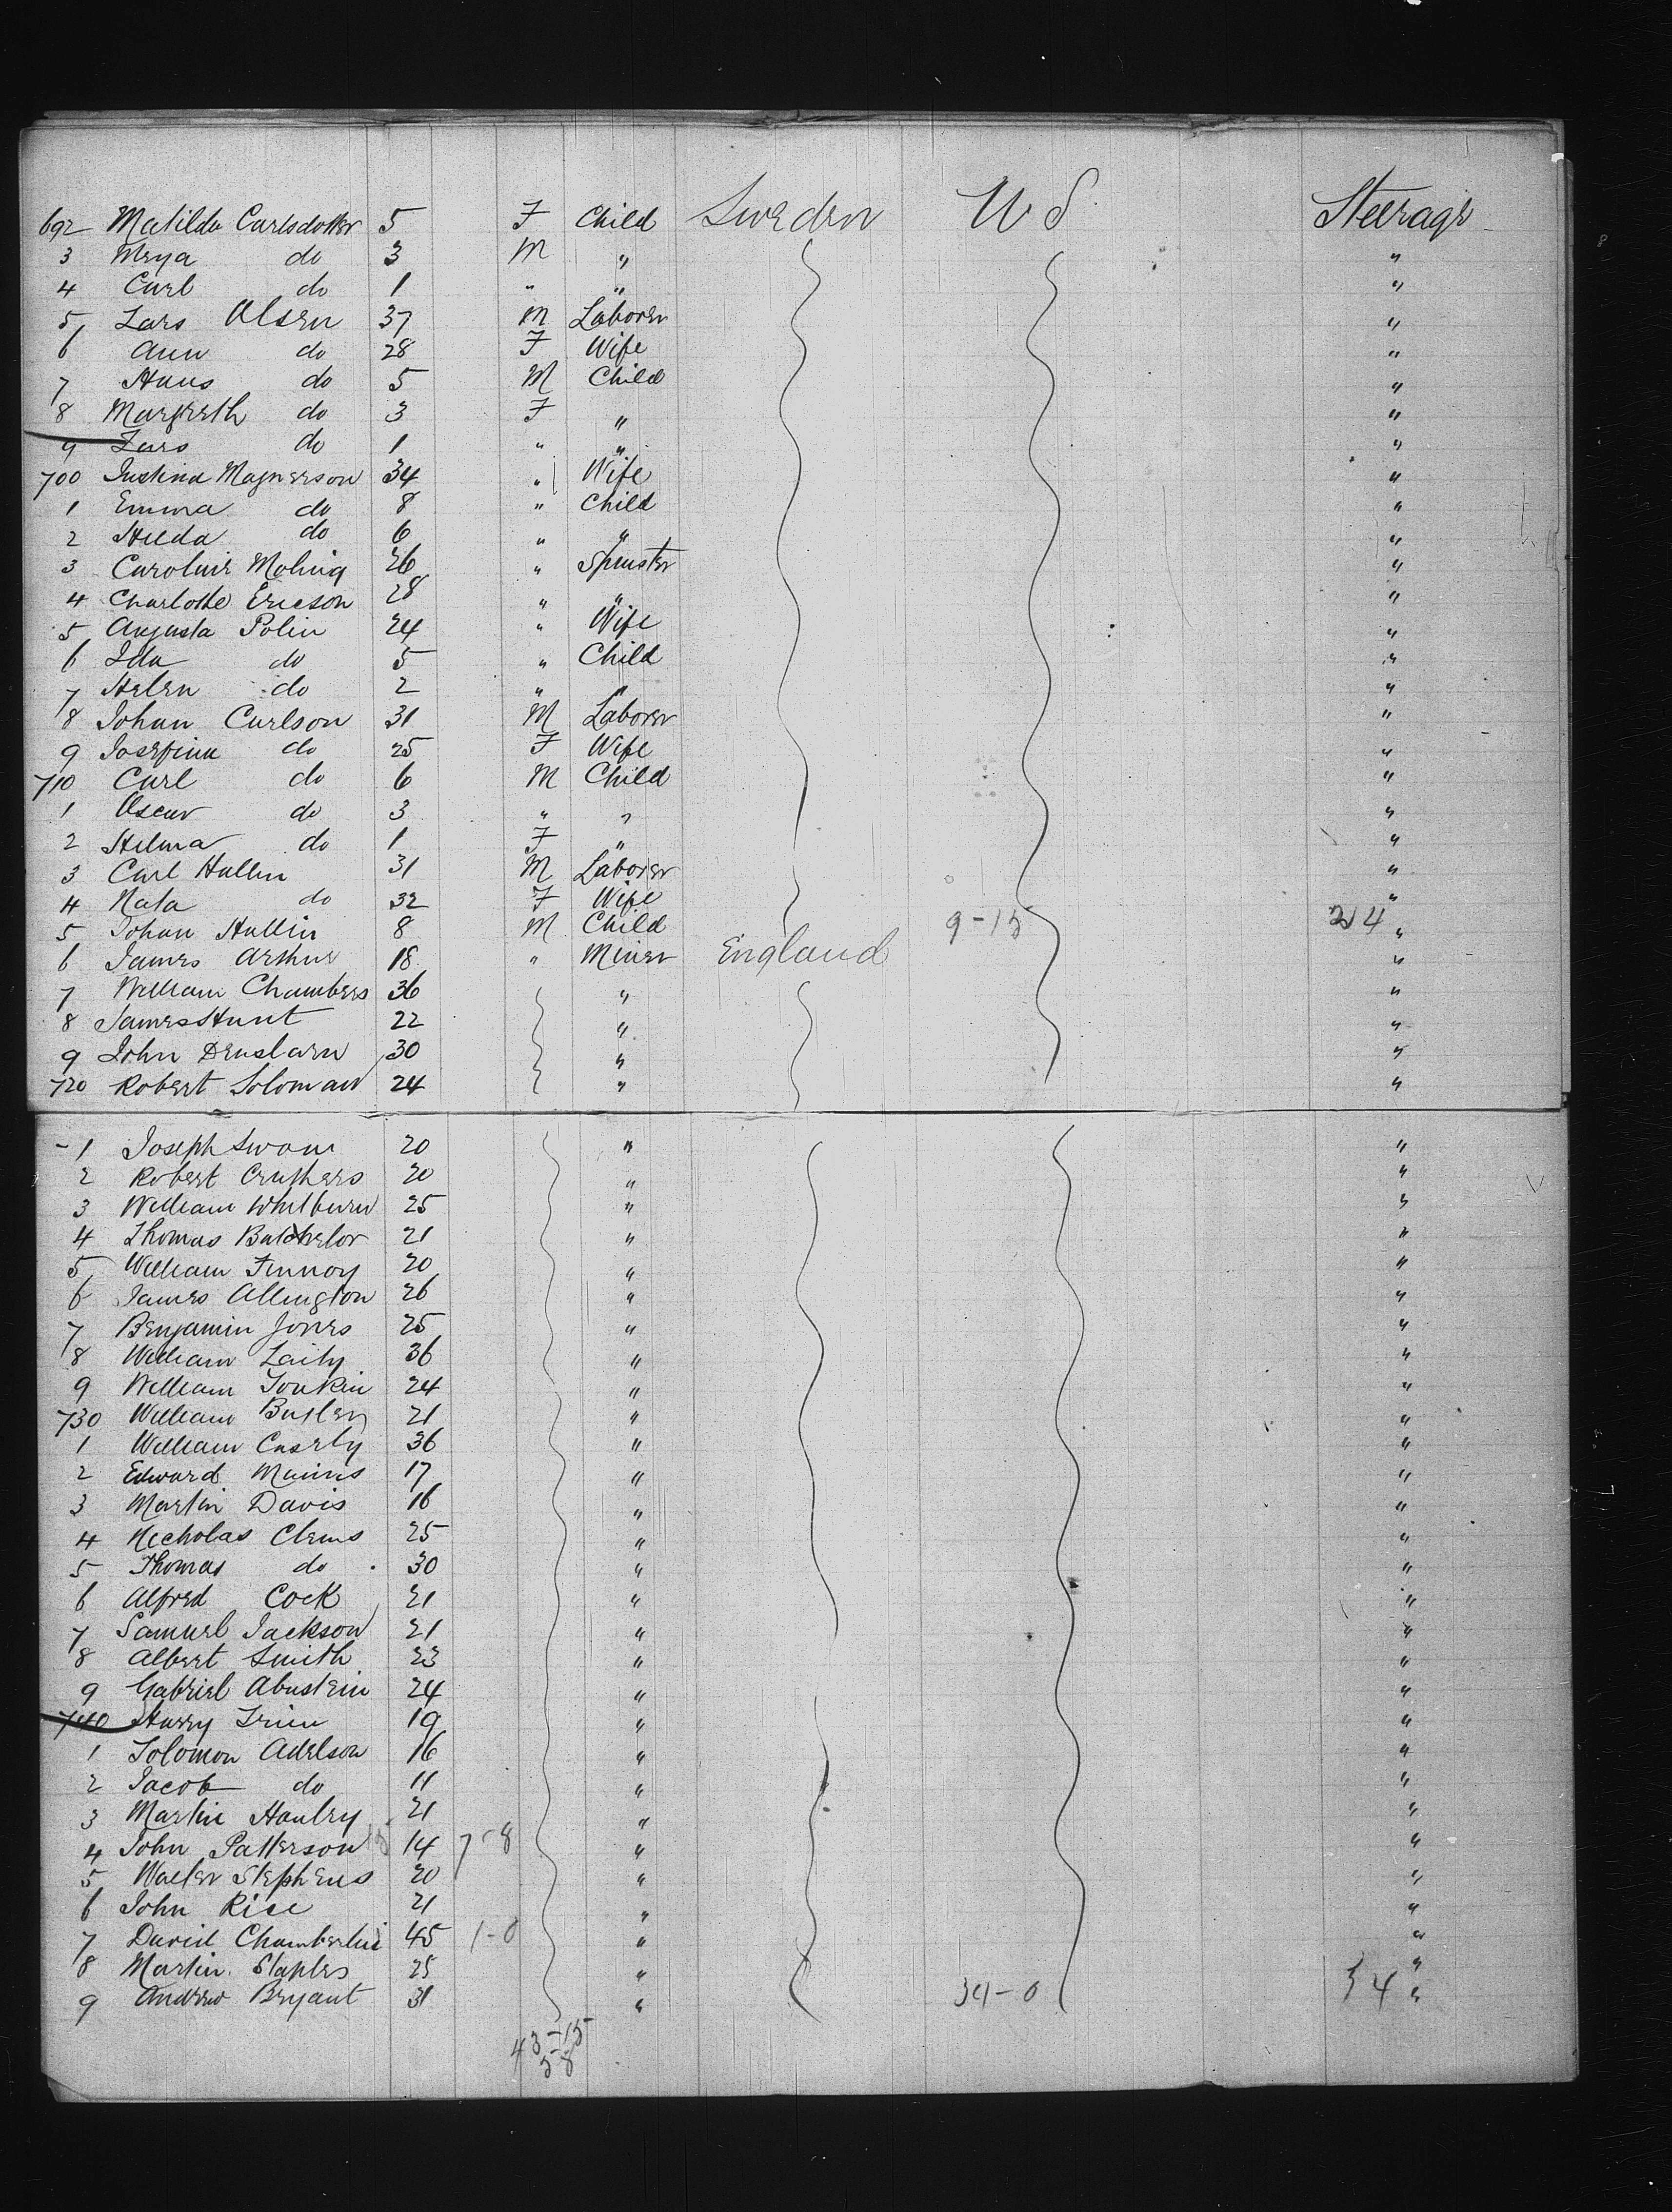 692 Matilda Carlsdotter 5 F Child Sweden U S Steerage
3 Meya do 3 M " "
4 Carl do 1 " " "
5 Lars Olsen 37 M Laborer "
6 Ann do 28 F Wife "
7 Hans do 5 M Child "
8 Margreth do 3 F " "
9 Lars do 1 " " "
700 Justina Magnerson 34 " Wife "
1 Emma do 8 " Child "
2 Hilda do 6 " " "
3 Caroline Molinq 26 " Spinster "
4 Charlotte Ericson 28 " " "
5 Augusta Polin 24 " Wife "
6 Ida do 5 " Child "
7 Helen do 2 " " "
8 Johan Carlson 31 M Laborer "
9 Josefina do 25 F Wife "
710 Carl do 6 M Child "
1 Oscar do 3 " " "
2 Hilma do 1 F " "
3 Carl Hallin 31 M Laborer "
4 Nata do 32 F Wife "
5 Johan Hallin 8 M Child 9-15 24 "
6 James Arthur 18 " Miner England "
7 William Chambers 36 " "
8 James Hunt 22 " "
9 John 30 " "
720 Robert Soloman 24 " "
-1 Joseph Swam 20 " "
2 Robert Cruthers 20 " "
3 William Whitburn 25 " "
4 Thomas Batchelor 21 " "
5 William Finnoy 20 " "
6 James Allington 26 " "
7 Benjamin Jones 25 " "
8 William Laity 36 " "
9 William Tonkin 24 " "
730 William Butler 21 " "
1 William Caserly 36 " "
2 Edward Manns 17 " "
3 Martin Davis 16 " "
4 Nicholas Clems 25 " "
5 Thomas do 30 " "
6 Alfred Cock 21 " "
7 Samuel Jackson 21 " "
8 Albert Smith 23 " "
9 Gabriel Abustein 24 " "
740 Harry Trim 19 " "
1 Solomon Adelson 16 " "
2 Jacob do 11 " "
3 Martin Hanley 21 " "
4 John Patterson 14 7-8 " "
5 Walter Stephens 20 " "
6 John Rice 21 " "
7 David Chamberlin 45 1-0 " "
8 Martin Staples 25 " "
9 Andrew Bryant 31 " 34-0 34 "
43-15
58